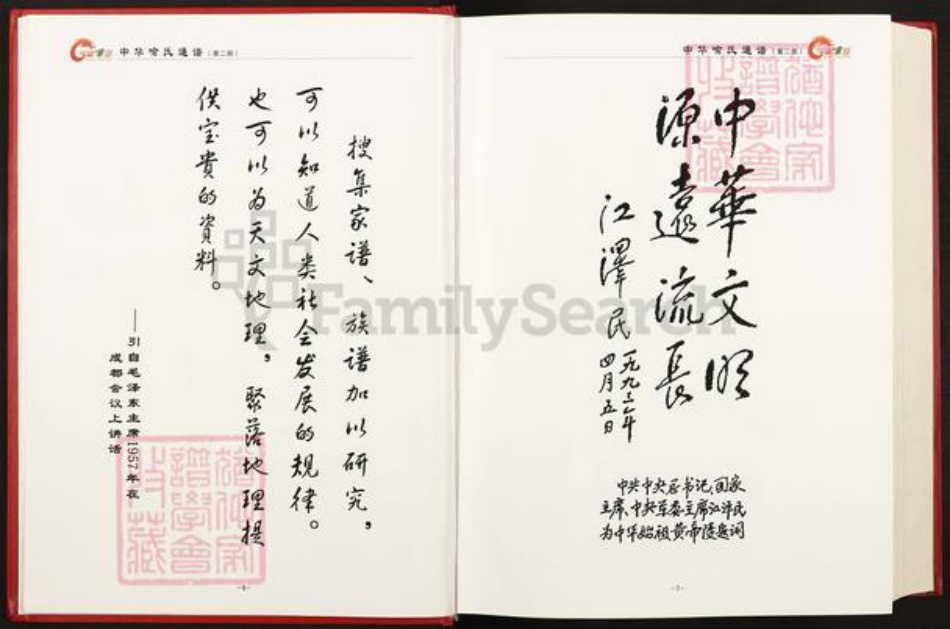 中华喻氏通谱（第二部）
搜集家谱、族谱加以研究，
可以知道人类社会发展的规律。
也可以为天文地理，聚落地理提
供宝贵的资料。
——引自毛泽东主席1957年在
成都会议上讲话
-6-
中华喻氏通谱（第二部）
中華文明
源遠流長
江澤民
一九九三年
四月五日
中共中央总书记、国家
主席、中央军委主席江泽民
为中华始祖黄帝陵题词
-7-
FamilySearch